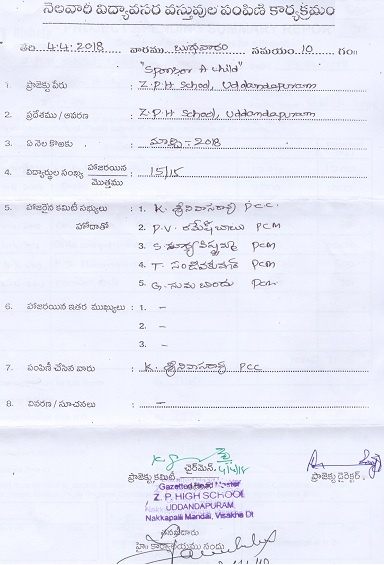 నెలవారీ విద్యావసర వస్తువుల పంపిణీ కార్యక్రమం
తేది 4.4.2018 వారము బుధవారం సమయం 10 గం॥
"Sponsor A child"
1. ప్రాజెక్టు పేరు : Z.P.H School, Uddandapuram
2. ప్రదేశము / ఆవరణ : Z.P.H School, Uddandapuram
3. ఏ నెల కొఱకు : మార్చి - 2018
4. విద్యార్థుల సంఖ్య హాజరయిన / మొత్తము : 15/15
5. హాజరైన కమిటీ సభ్యులు : 1. K. శ్రీనివాసరావు PCC.
హోదాతో 2. P.V. రమేష్ బాబు PCM
3. S. PCM
4. T. PCM
5. G. PCM
6. హాజరయిన ఇతర ముఖ్యులు : 1. –
2. –
3. –
7. పంపిణీ చేసిన వారు : K. శ్రీనివాసరావు PCC
8. వివరణ / సూచనలు : –
4/4/18
ప్రాజెక్టు కమిటీ ఛైర్‌మెన్ ప్రాజెక్టు డైరెక్టర్,
Gazetted Head Master
Z. P. HIGH SCHOOL
UDDANDAPURAM,
Nakkapalli Mandal, Visakha Dt